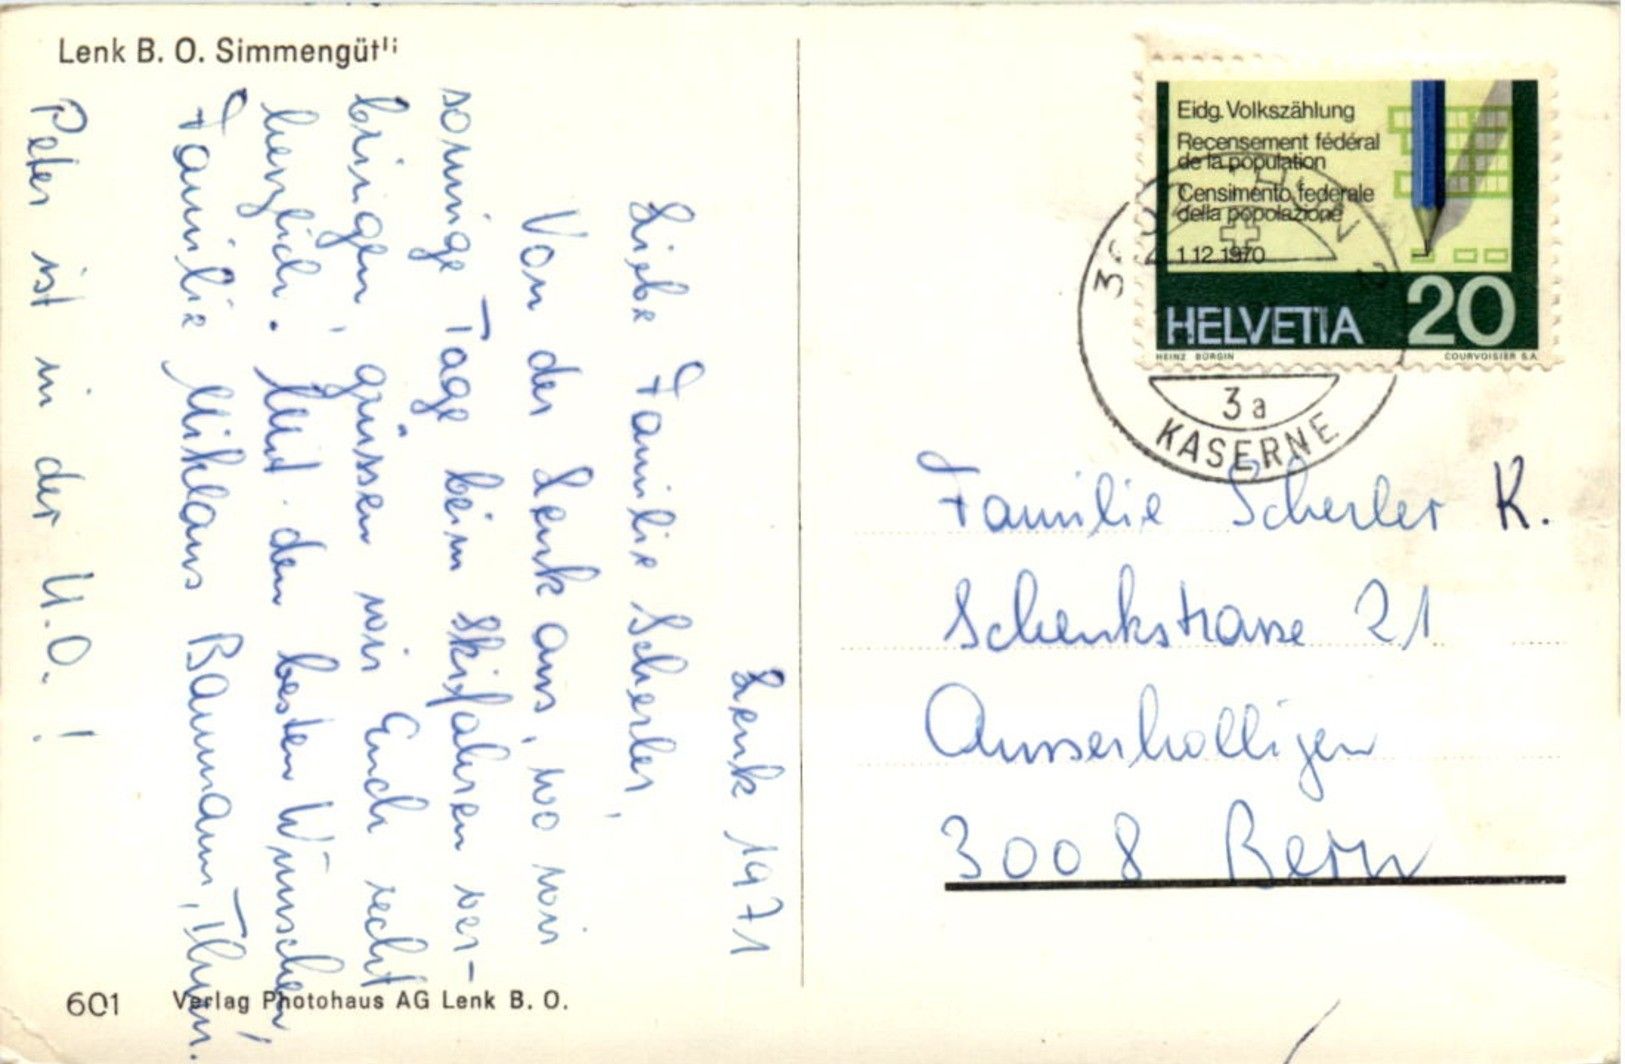 Lenk B. O. Simmengütli
Lenk 1971
Liebe Familie Scherler,
Von der Lenk aus, wo wir
sonnige Tage beim Skifahren ver-
bringen, grüssen wir Euch recht
herzlich. Mit den besten Wünschen,
Familie Niklaus Baumann, Thun.
Peter ist in der U.O.!
601 Verlag Photohaus AG Lenk B. O.
Eidg. Volkszählung
Recensement fédéral
de la population
Censimento federale
della popolazione
1.12.1970
HELVETIA 20
HEINZ BÜRGIN COURVOISIER S.A.
3a
KASERNE
Familie Scherler K.
Schenkstrasse 21
Ausserholligen
3008 Bern